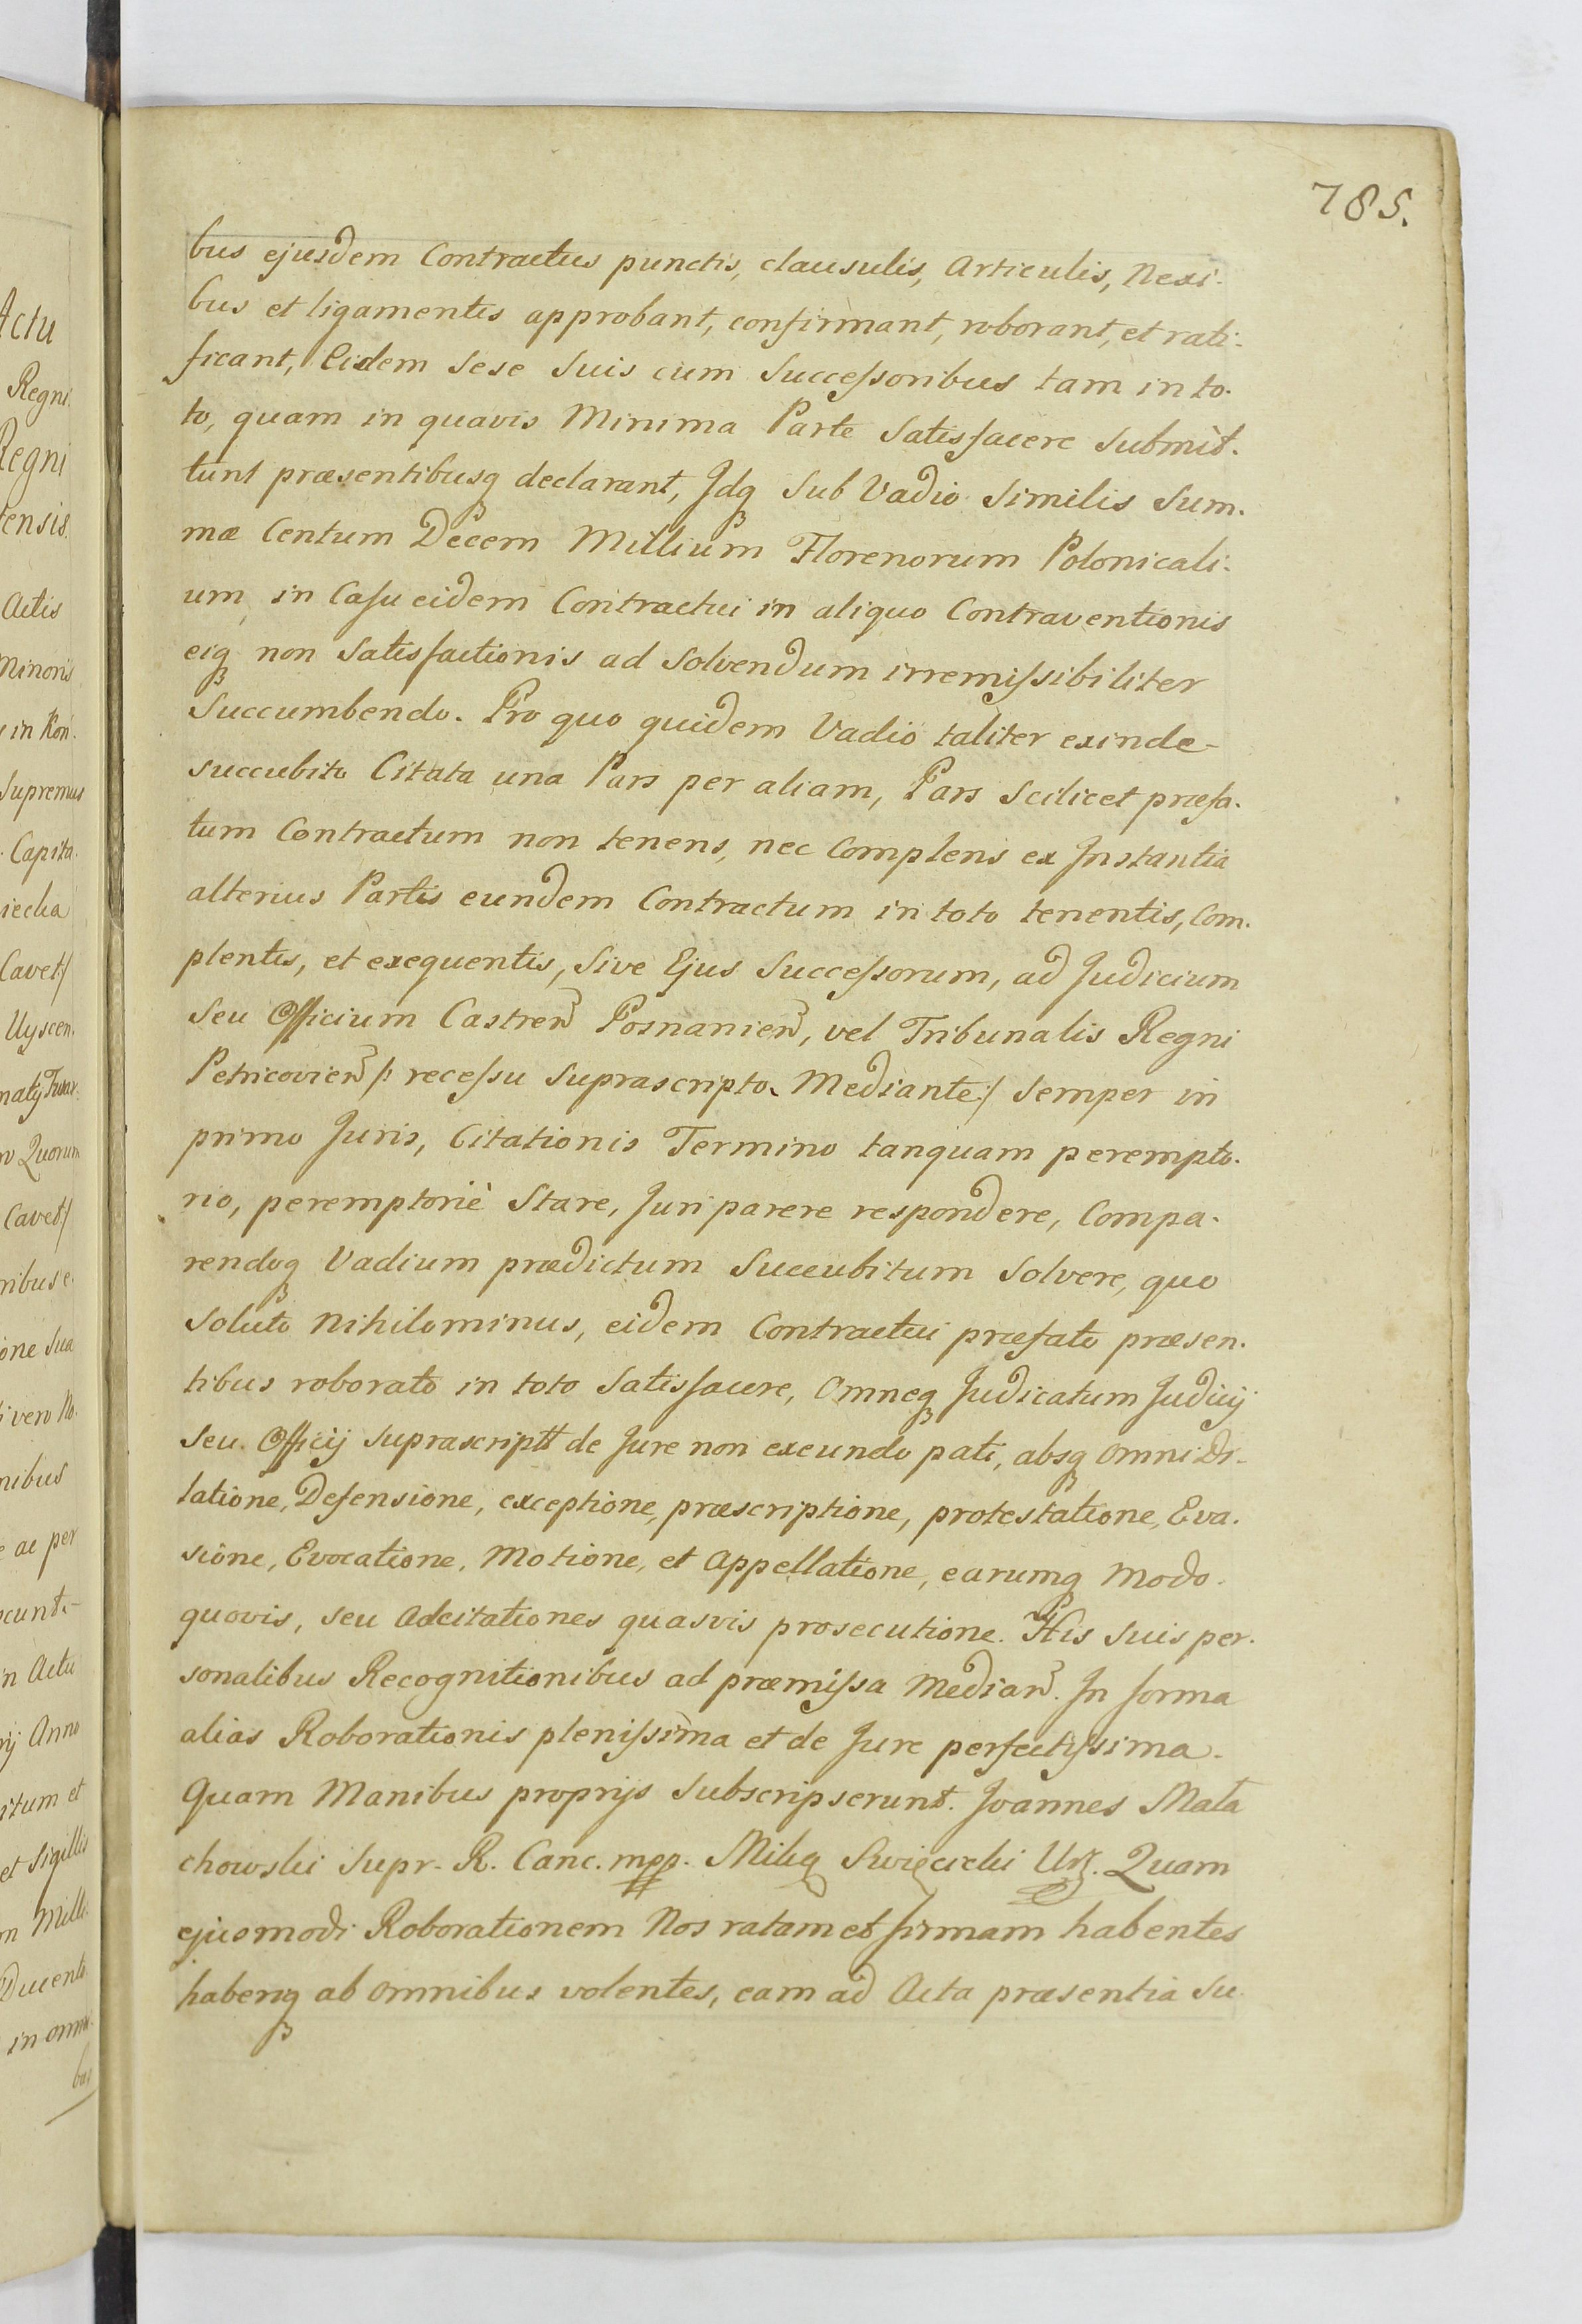 785.
bus ejusdem Contractus punctis, clausulis, Articulis, Nexi-
bus et ligamentis approbant, confirmant, roborant, et rati-
ficant, Eidem Sese Suis cum Successoribus tam in to-
to, quam in quavis Minima Parte Satisfacere Submit-
tunt præsentibusq declarant, Idq Sub Vadio Similis Sum-
mæ Centum Decem Millium Florenorum Polonicali-
um, in Casu eidem Contractui in aliquo Contraventionis
eiq non Satisfactionis ad Solvendum irremissibiliter
Succumbendo. Pro quo quidem Vadio taliter exinde
succubito Citata una Pars per aliam, Pars Scilicet præfa-
tum Contractum non tenens, nec Complens ex Instantia
alterius Partis eundem Contractum in toto tenentis, Com-
plentis, et exequentis, Sive Ejus Successorum, ad Judicium
Seu Officium Castren Posnanien, vel Tribunalis Regni
Petricovien /: recessu Suprascripto Mediante :/ Semper in
primo Juris, Citationis Termino tanquam perempto-
rio, peremptoriè Stare, Juri parere respondere, Compa-
rendoq Vadium prædictum Succubitum Solvere, quo
Soluto Nihilominus, eidem Contractui præfato præsen-
tibus roborato in toto Satisfacere, Omneq Judicatum Judicij
Seu Officij Suprascriptt de Jure non exeundo pati, absq omni Di-
latione, Defensione, exceptione, præscriptione, protestatione, Eva-
sione, Evocatione, Motione, et Appellatione, earumq Modo
quovis, seu Adcitationes quasvis prosecutione. His Suis per-
sonalibus Recognitionibus ad præmissa Median. In forma
alias Roborationis plenissima et de Jure perfectissima.
Quam Manibus proprijs Subscripserunt. Joannes Mała
chowski Supr. R. Canc. mpp. Święcicki Quam
ejusmodi Roborationem Nos ratam et firmam habentes
haberiq ab omnibus volentes, eam ad Acta præsentia Su-